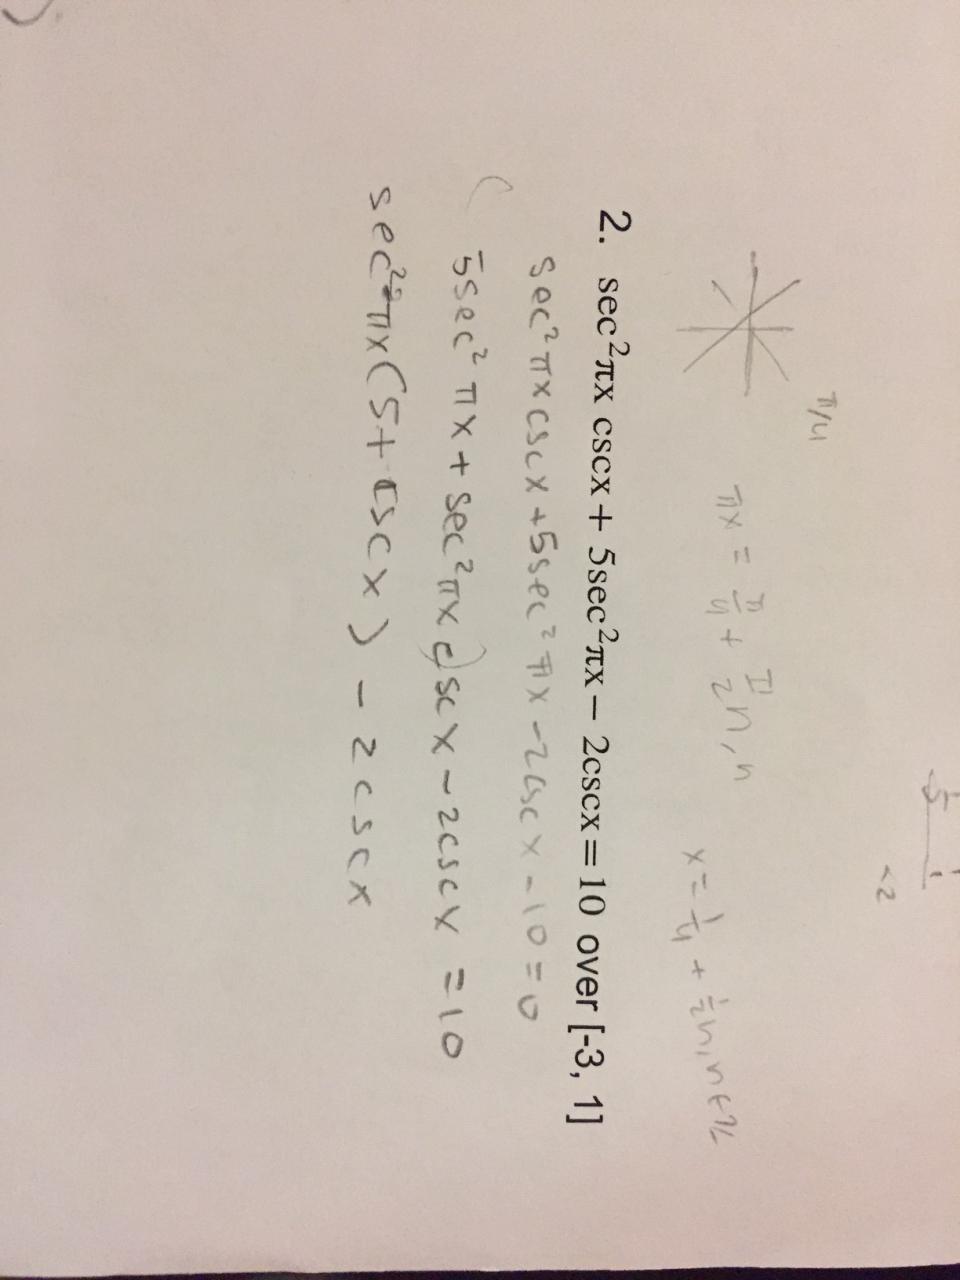 π/4
πx = π/4 + π/2 n, n
x = 1/4 + 1/2 n, n ∈ ℤ
2. sec²πx cscx + 5sec²πx − 2cscx = 10 over [-3, 1]
sec²πx cscx + 5sec²πx − 2cscx − 10 = 0
5sec²πx + sec²πx cscx − 2cscx = 10
sec²πx (5 + cscx) − 2cscx